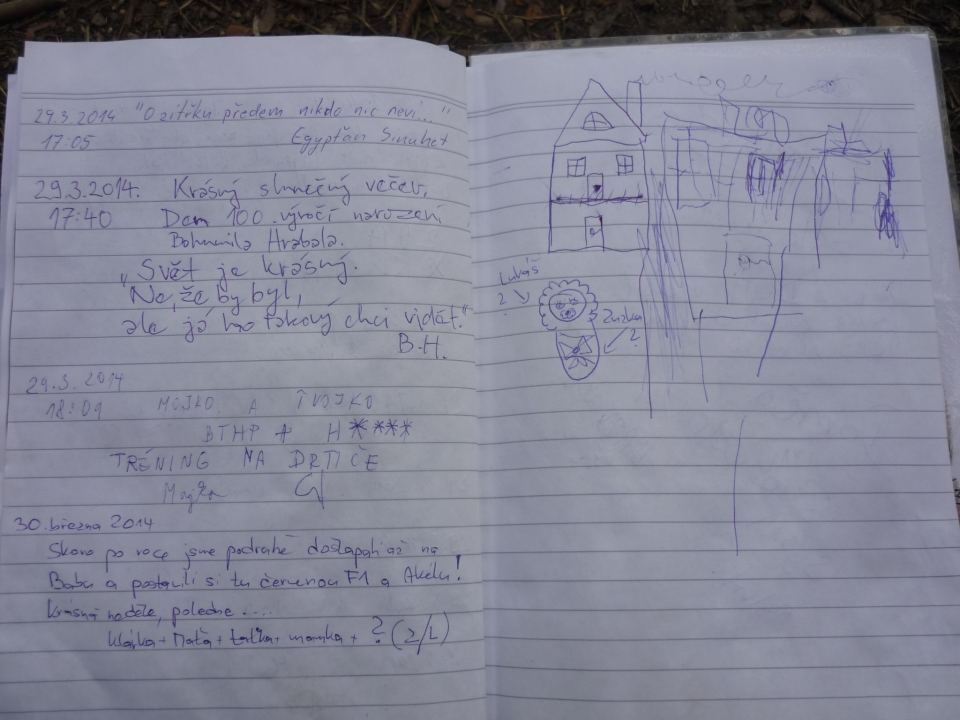 29.3.2014 "O zítřku předem nikdo nic neví..."
17:05 Egypťan Sinuhet
29.3.2014. Krásný slunečný večer,
17:40 Den 100. výročí narození
Bohumila Hrabala.
„Svět je krásný.
Ne, že by byl,
ale já ho takový chci vidět."
B.H.
29.3.2014
18:09 MOJKO A TVOJKO
BTHP + H****
TRÉNING NA DRTIČE
30. března 2014
Skoro po roce jsme podruhé došlapali až na
Babu a postavili si tu červenou F1 a Akélu!
Krásná neděle, poledne ....
Klárka + Máťa + taťka + mamka + ? (Z/L)
Lukáš
?
Zuzka
?